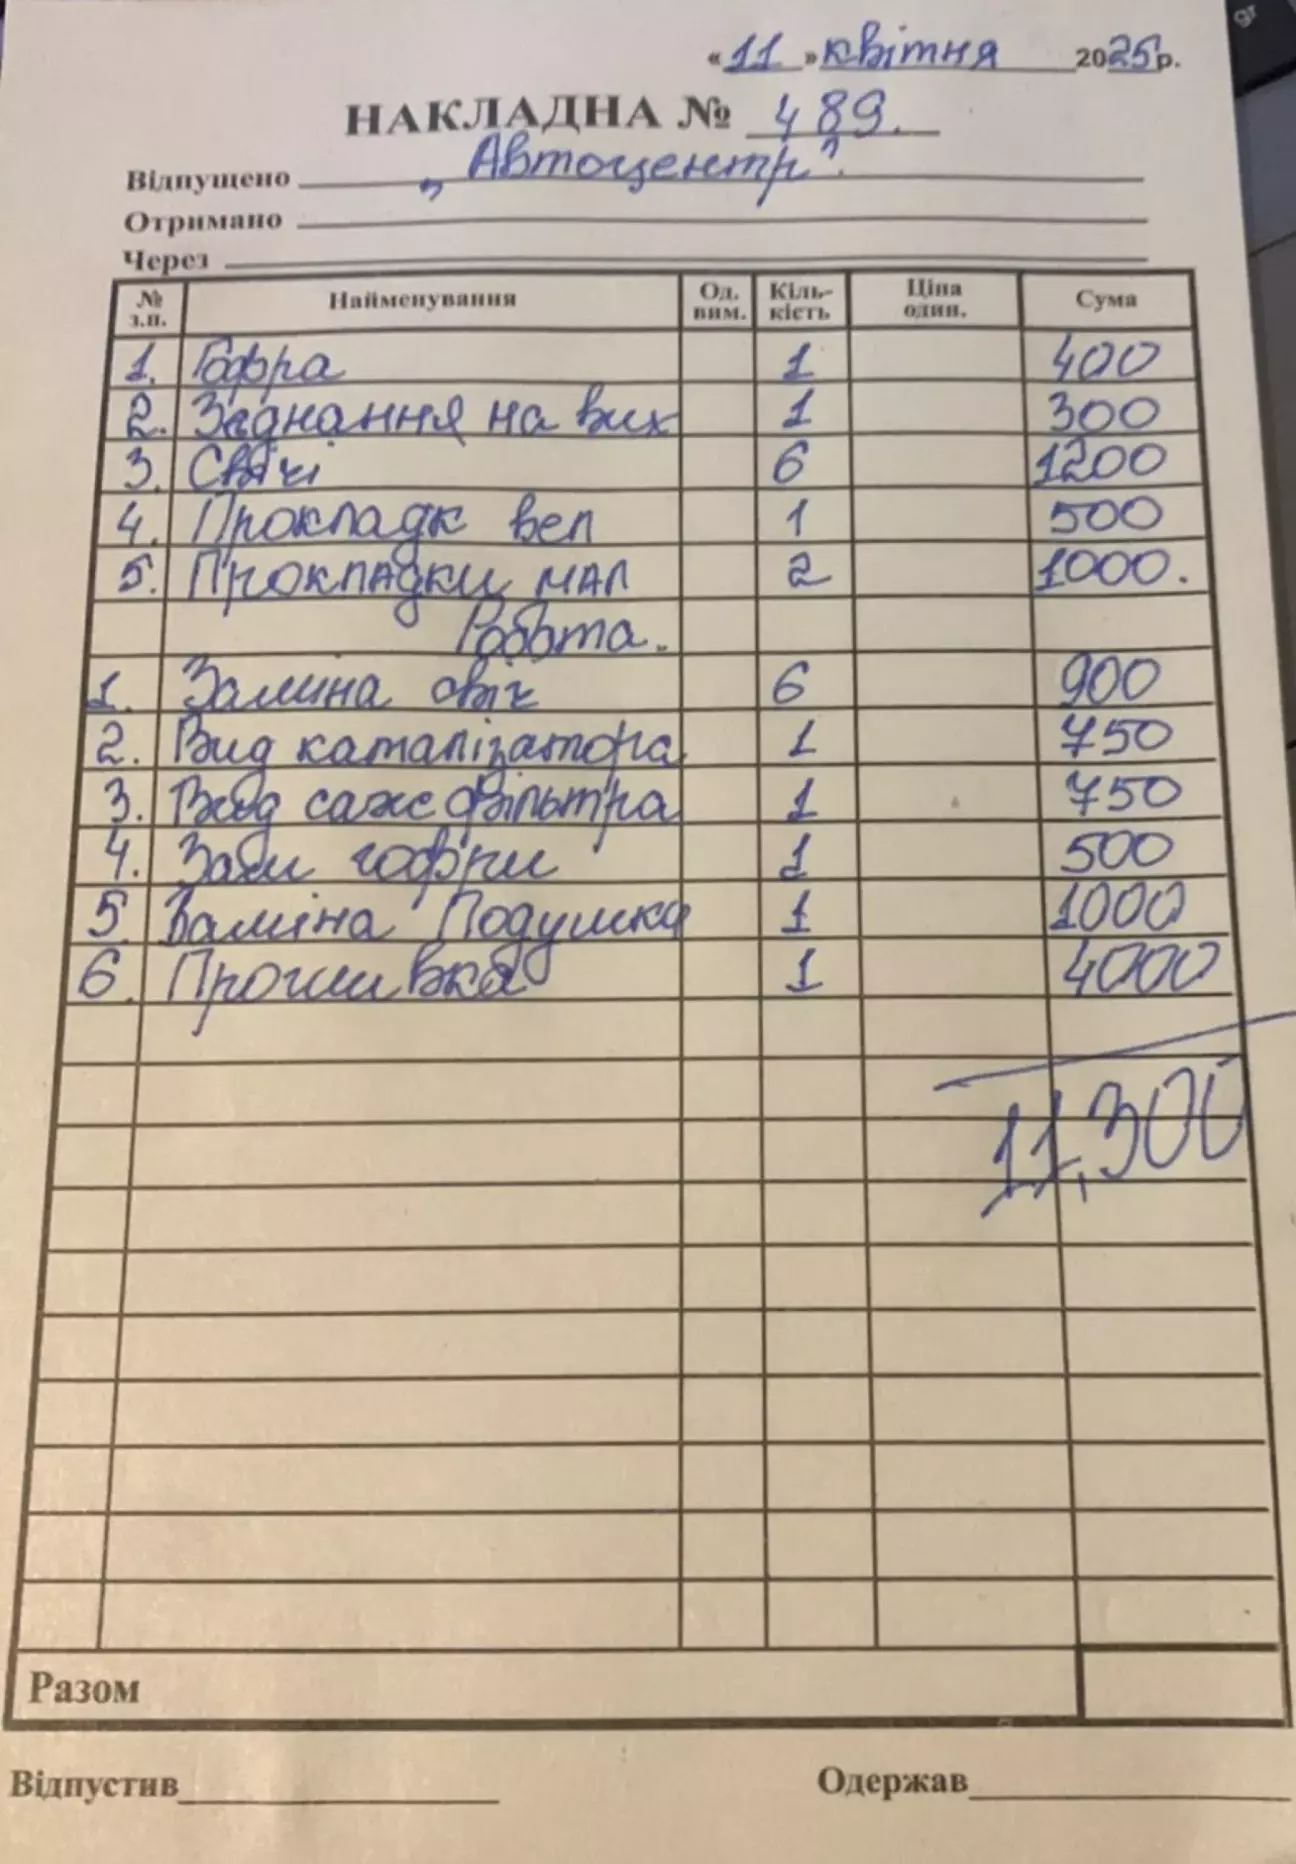 «11» квітня 2025р.
НАКЛАДНА № 489.
Відпущено „Автоцентр".
Отримано
Через
№ з.п. Найменування Од. вим. Кіль-кість Ціна один. Сума
1. Гофра 1 400
2. Зєднання на вих 1 300
3. Свічі 6 1200
4. Прокладк вел 1 500
5. Прокладки мал 2 1000.
Робота.
1. Заміна свіч 6 900
2. Вид каталізатора 1 750
3. Вид сажефільтра 1 750
4. Зам гофри 1 500
5 Заміна Подушки 1 1000
6. Прошивка 1 4000
11,300
Разом
Відпустив Одержав